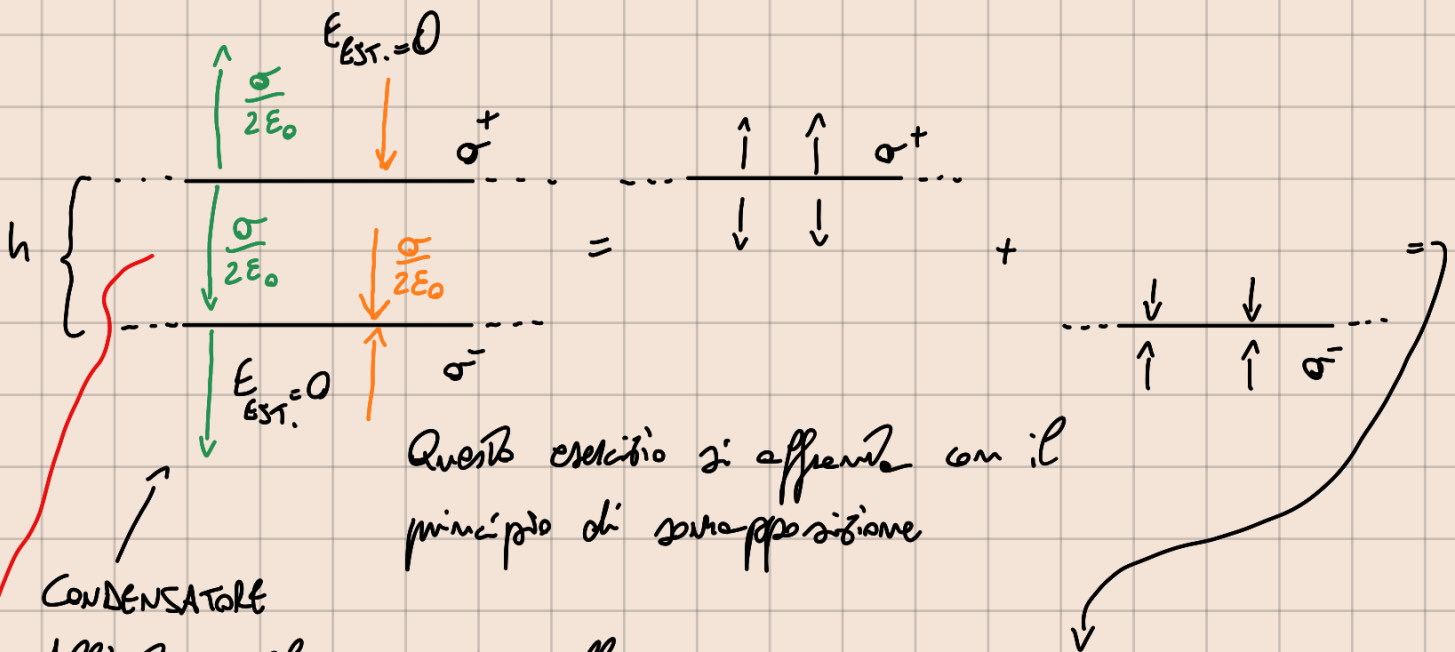 E_EST. = 0
σ/2ε₀
σ⁺
h {
σ/2ε₀
σ/2ε₀
=
σ⁺
+
=
E_EST. = 0
σ⁻
σ⁻
Questo esercizio si affronta con il
principio di sovrapposizione
CONDENSATORE